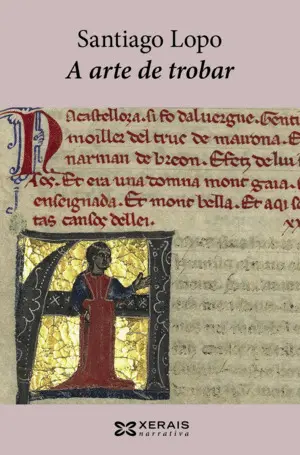 Santiago Lopo
A arte de trobar
Na castelloza. si fo daluergne. Genti
moiller del truc de mairona. E
narman de breon. Et fetz de lui
sos. Et era una domna mout gaia.
enseignada. Et mout bella. Et aqi so
tas cansos dellei.
XERAIS
narrativa